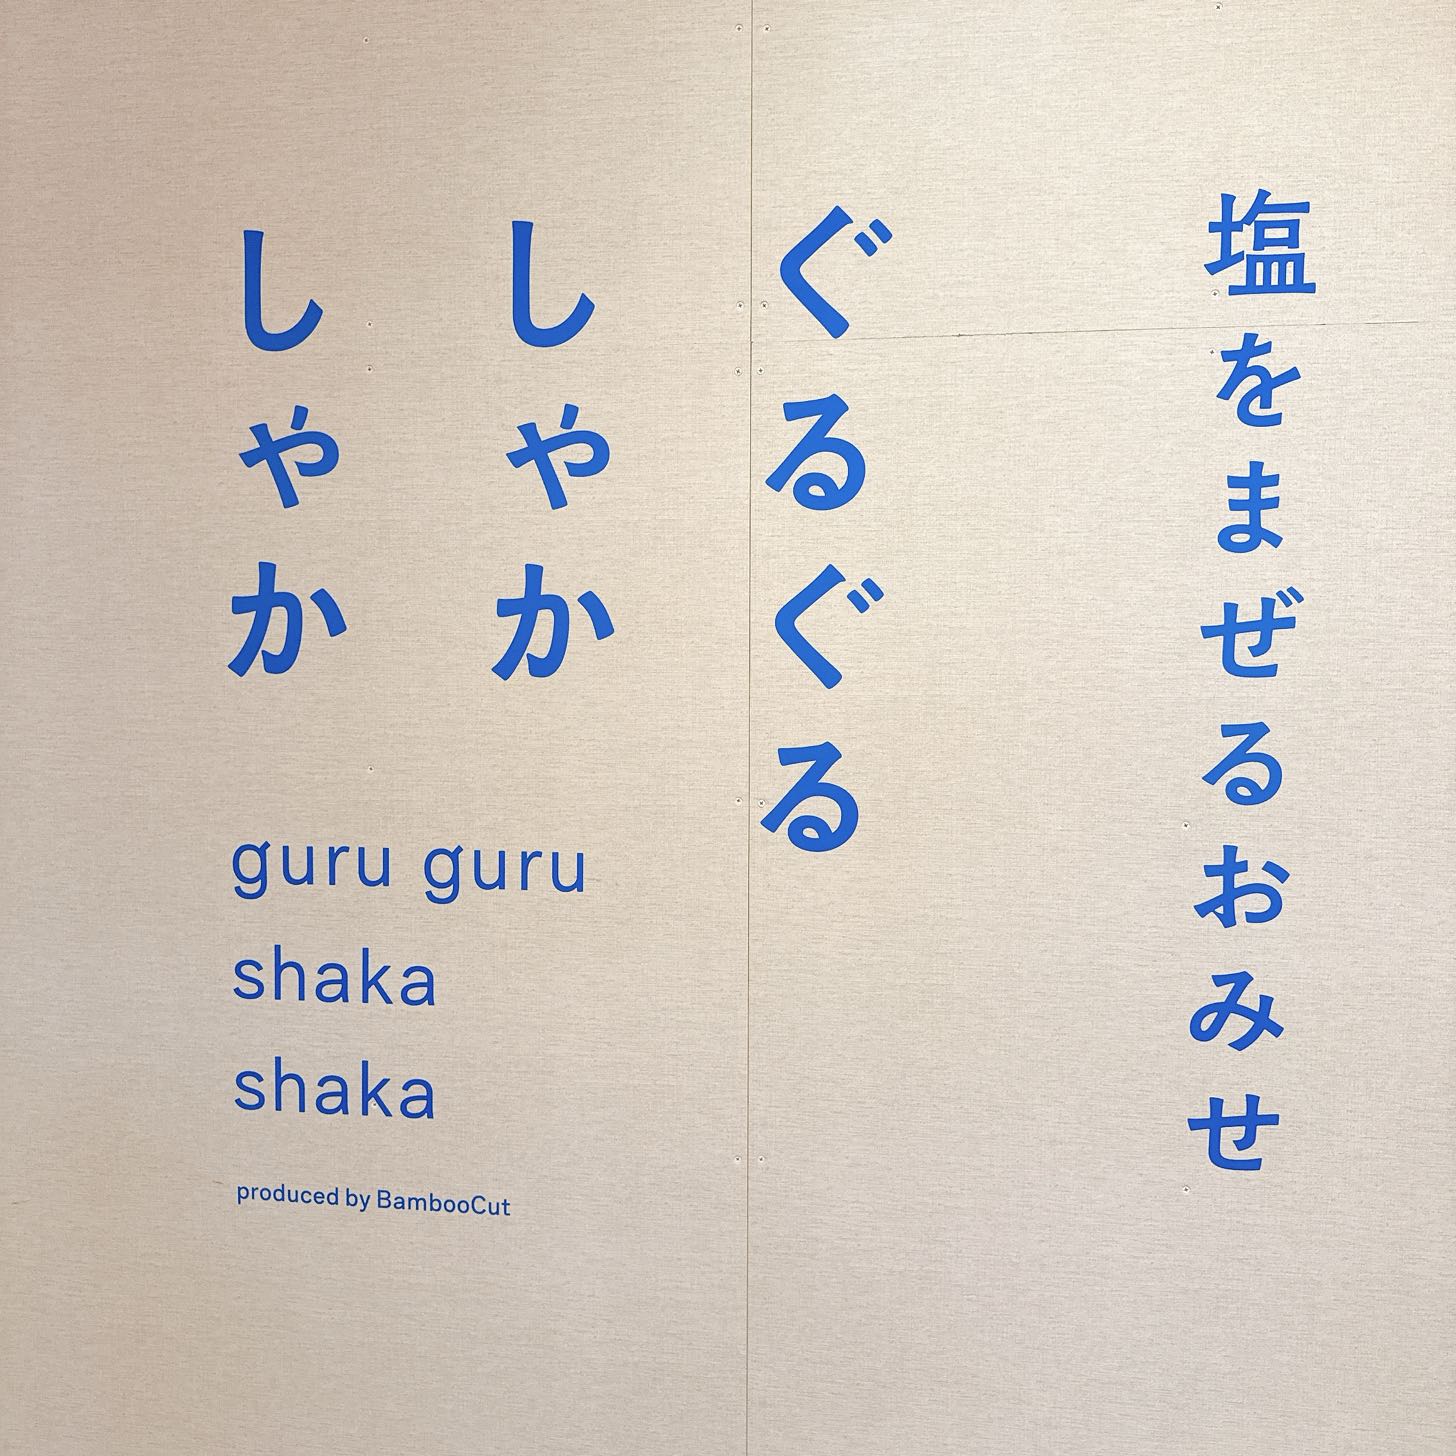 塩をまぜるおみせ
ぐるぐる
しゃか
しゃか
guru guru
shaka
shaka
produced by BambooCut